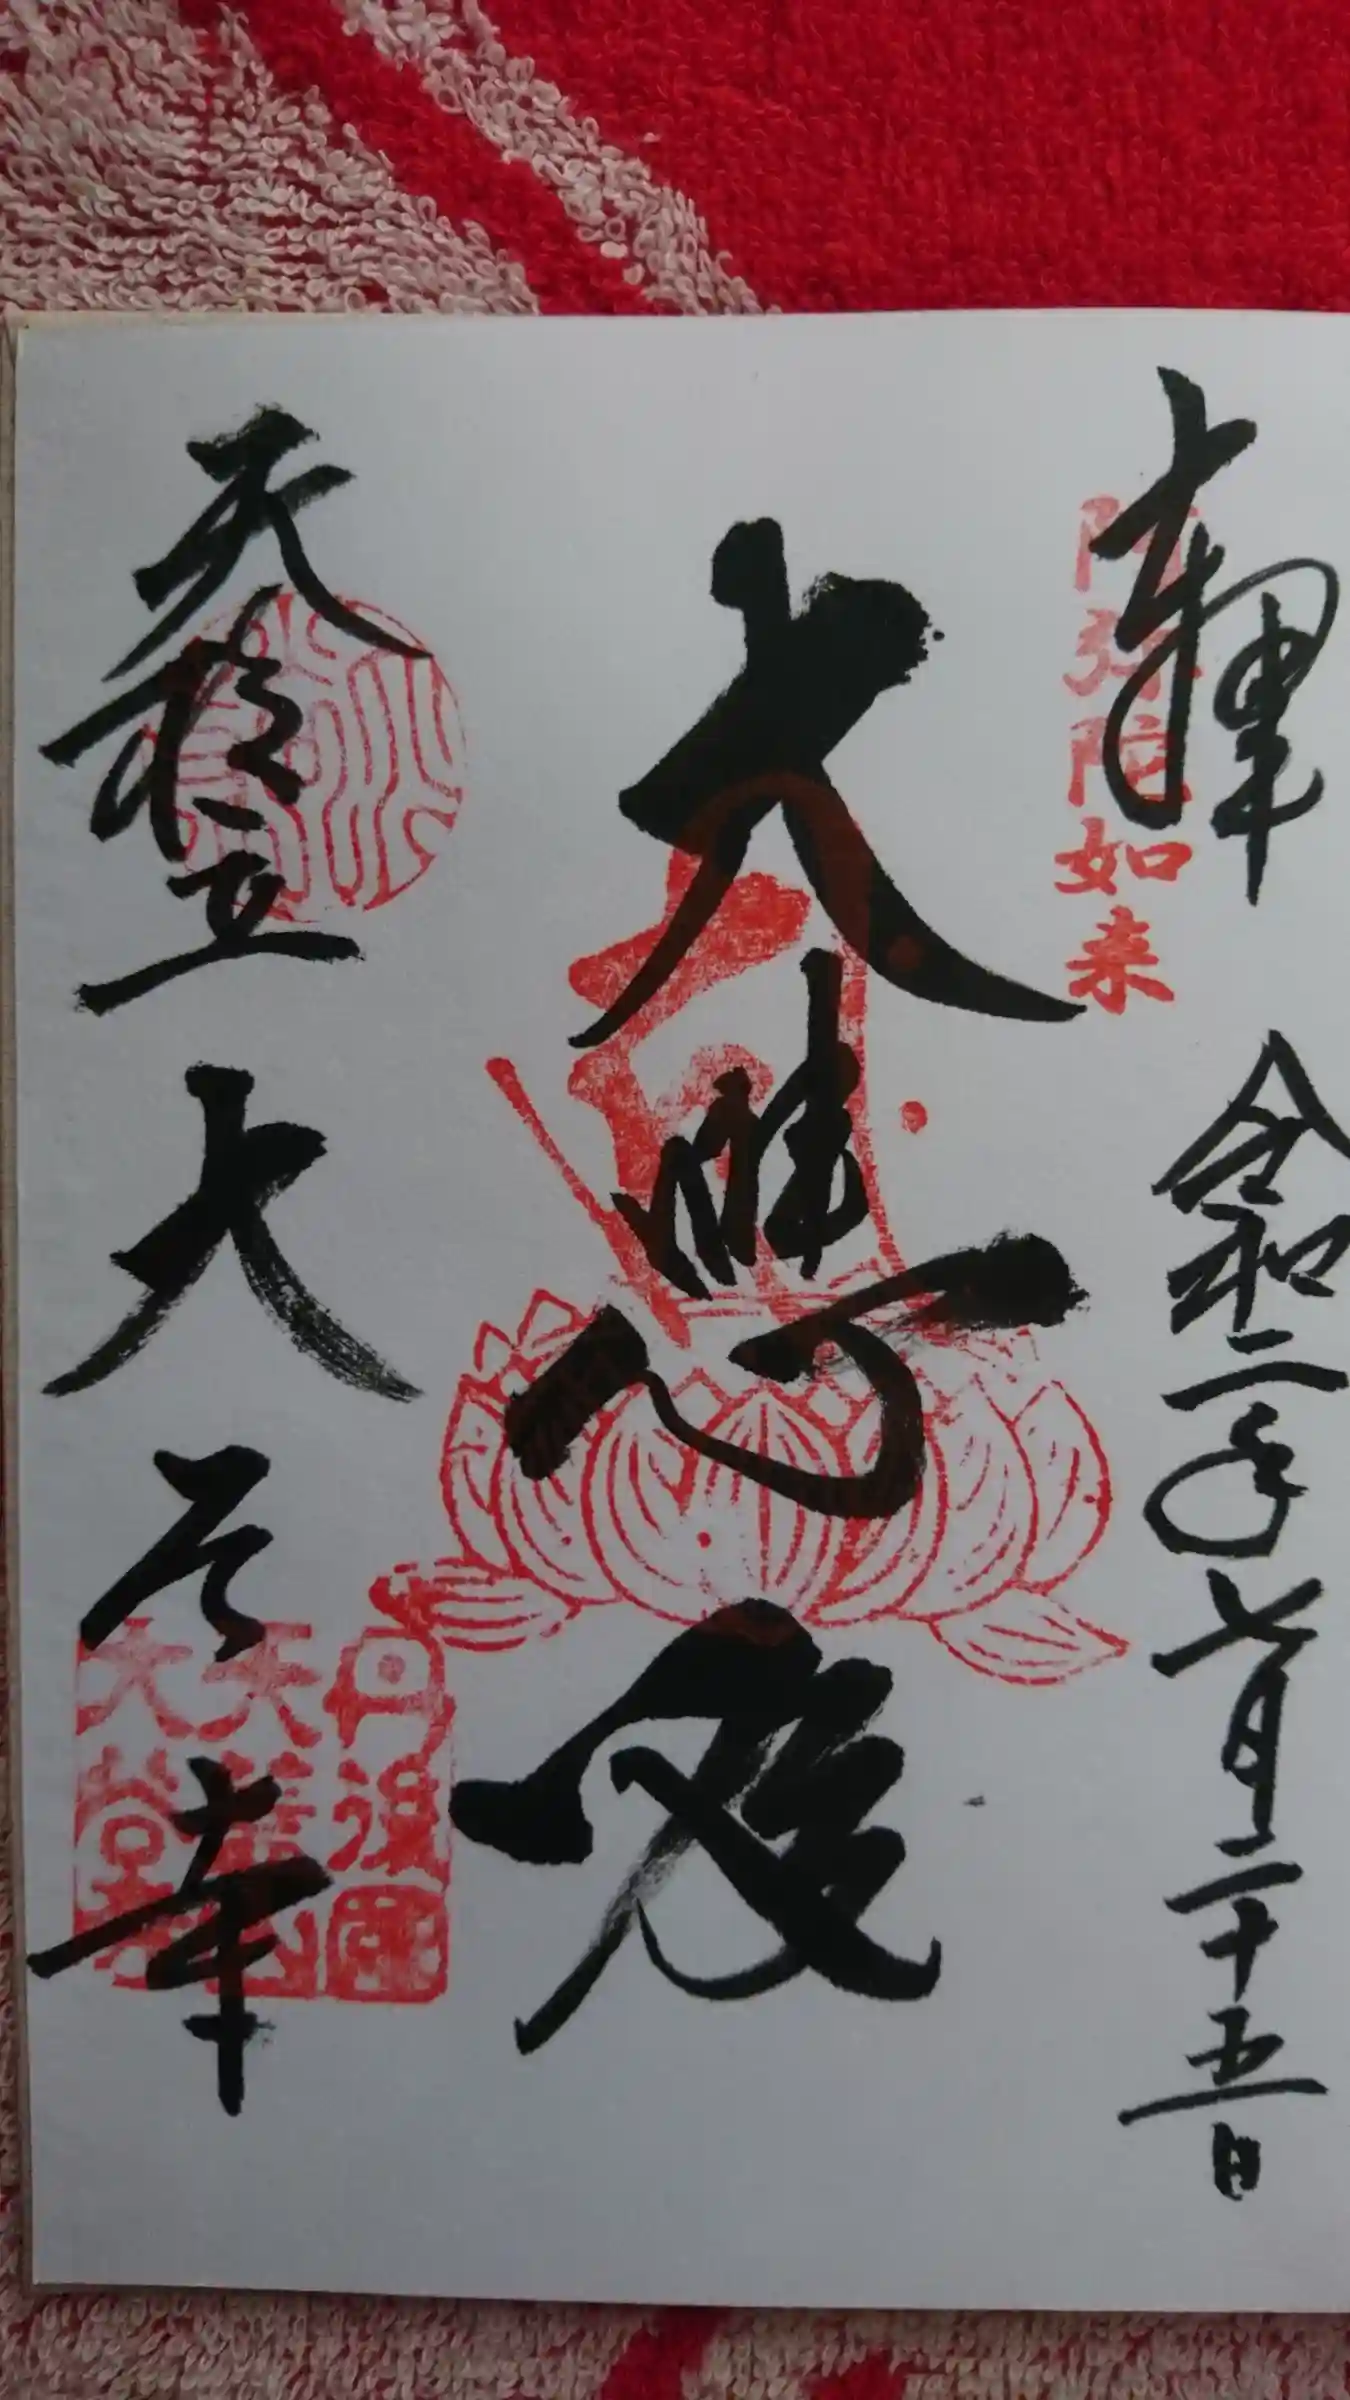 奉拝
阿弥陀如来
令和二年七月二十五日
大悲殿
天橋立 大谷寺
丹後國
天蓋山
大谷寺